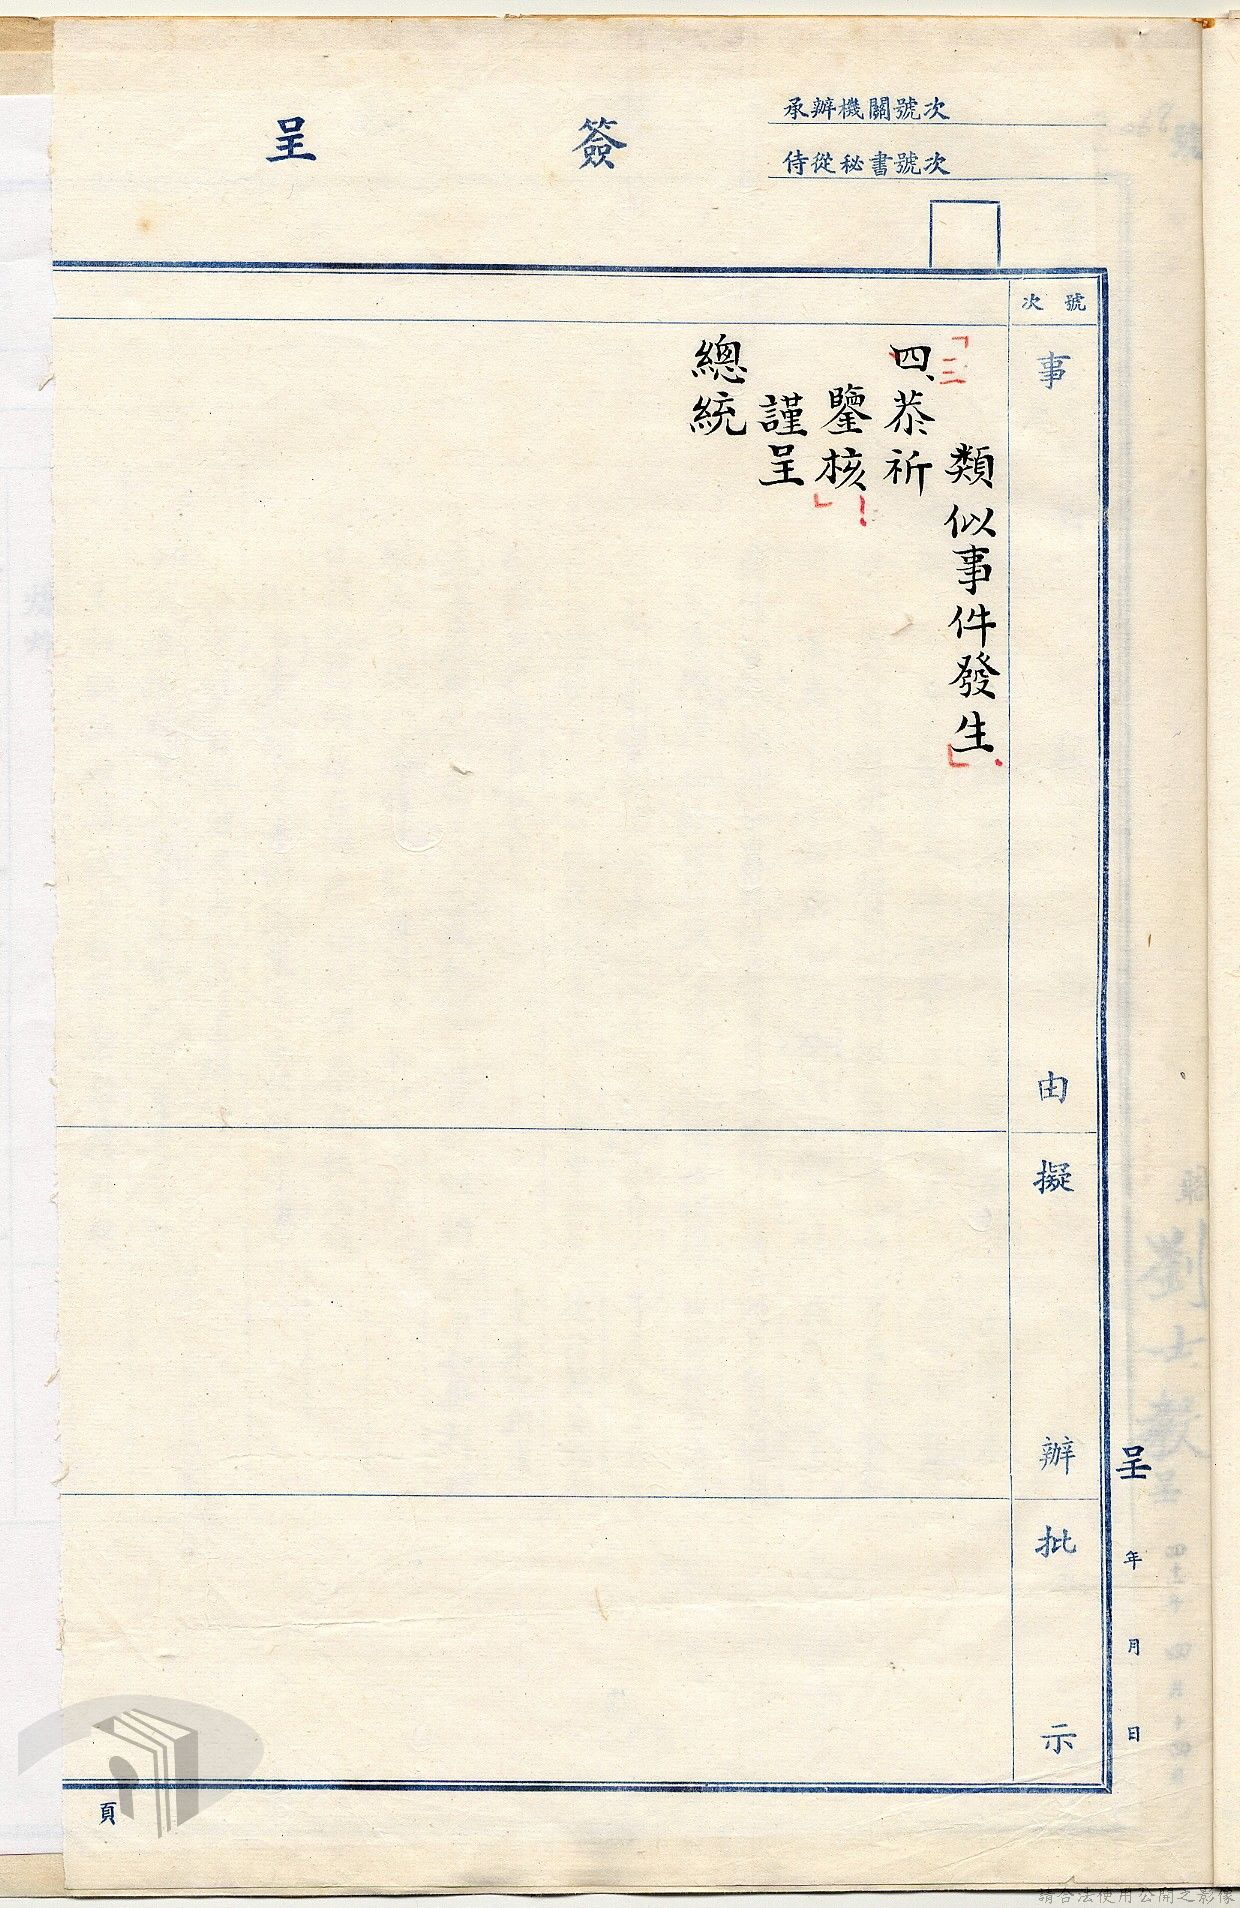 簽呈
承辦機關號次
侍從秘書號次
號次
事由
擬辦
批示
類似事件發生」.
「三
四、恭祈
鑒核」!
謹呈
總統
呈
年 月 日
頁
請合法使用公開之影像